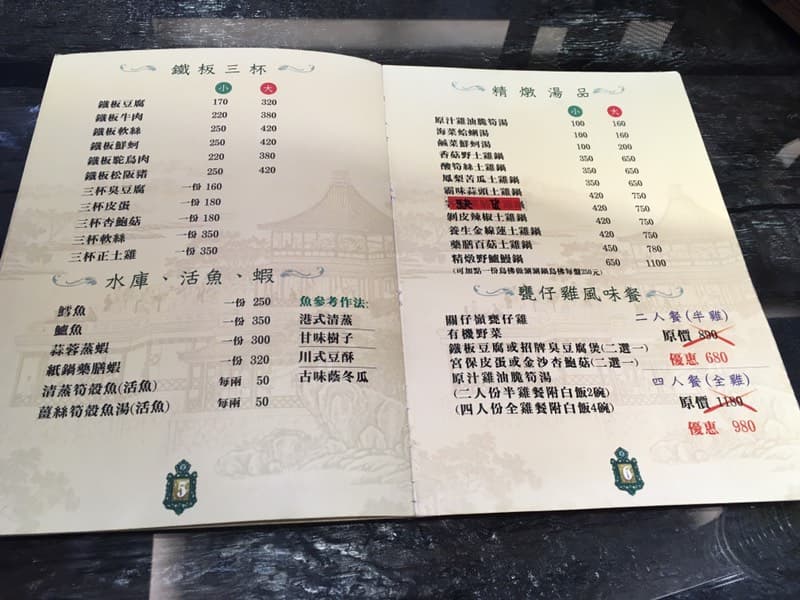 鐵板三杯
小 大
鐵板豆腐 170 320
鐵板牛肉 220 380
鐵板軟絲 250 420
鐵板鮮蚵 250 420
鐵板鴕鳥肉 220 380
鐵板松阪豬 250 420
三杯臭豆腐 一份 160
三杯皮蛋 一份 180
三杯杏鮑菇 一份 180
三杯軟絲 一份 350
三杯正土雞 一份 350
水庫、活魚、蝦
鱈魚 一份 250
鱸魚 一份 350
蒜蓉蒸蝦 一份 300
紙鍋藥膳蝦 一份 320
清蒸筍殼魚(活魚) 每兩 50
薑絲筍殼魚湯(活魚) 每兩 50
魚參考作法:
港式清蒸
甘味樹子
川式豆酥
古味蔭冬瓜
5
精燉湯品
小 大
原汁雞油脆筍湯 100 160
海菜蛤蜊湯 100 160
鹹菜鮮蚵湯 100 200
香菇野土雞鍋 350 650
酸筍絲土雞鍋 350 650
鳳梨苦瓜土雞鍋 350 650
霸味蒜頭土雞鍋 420 750
420 750
剝皮辣椒土雞鍋 420 750
養生金線蓮土雞鍋 420 750
藥膳百菇土雞鍋 450 780
精燉野鱸鰻鍋 650 1100
甕仔雞風味餐
關仔嶺甕仔雞
有機野菜
鐵板豆腐或招牌臭豆腐煲(二選一)
宮保皮蛋或金沙杏鮑菇(二選一)
原汁雞油脆筍湯
(二人份半雞餐附白飯2碗)
(四人份全雞餐附白飯4碗)
二人餐(半雞)
原價 890
優惠 680
四人餐(全雞)
原價 1180
優惠 980
6